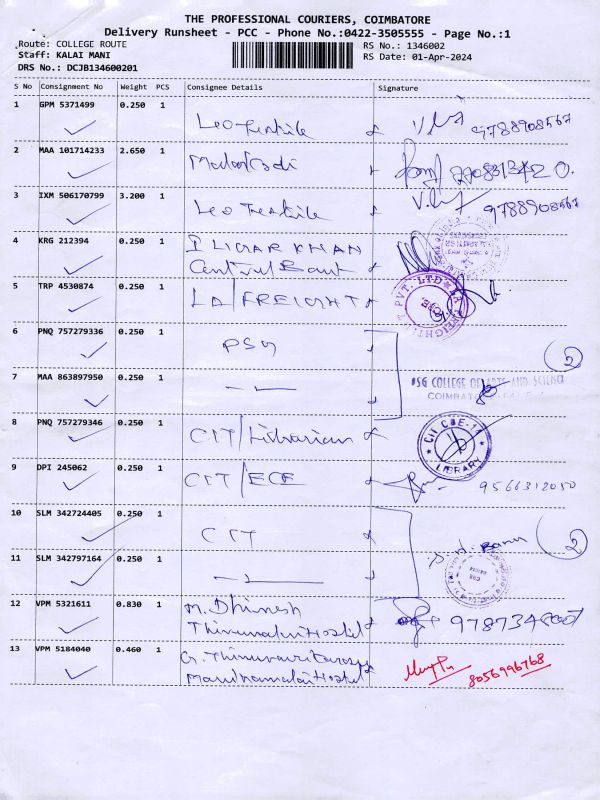 THE PROFESSIONAL COURIERS, COIMBATORE
Delivery Runsheet - PCC - Phone No.:0422-3505555 - Page No.:1
Route: COLLEGE ROUTE RS No.: 1346002
Staff: KALAI MANI RS Date: 01-Apr-2024
DRS No.: DCJB134600201
S No Consignment No Weight PCS Consignee Details Signature
1 GPM 5371499 0.250 1
Leo Textile 9788908567
2 MAA 101714233 2.650 1
3 IXM 506170799 3.200 1
Leo Textile 9788908567
4 KRG 212394 0.250 1 KHAN
Central Bank
5 TRP 4530874 0.250 1 LA/FREIGHT PVT. LTD
6 PNQ 757279336 0.250 1 PSG
2
7 MAA 863897950 0.250 1 PSG COLLEGE OF ARTS AND SCIENCE
COIMBATORE
8 PNQ 757279346 0.250 1
CIT/Librarian LIBRARY
9 DPI 245062 0.250 1 CIT/ECE 9566312050
10 SLM 342724405 0.250 1
CIT 2
11 SLM 342797164 0.250 1
12 VPM 5321611 0.830 1 M. Dhinesh
Hostel
13 VPM 5184040 0.460 1
Hostel 8056996768